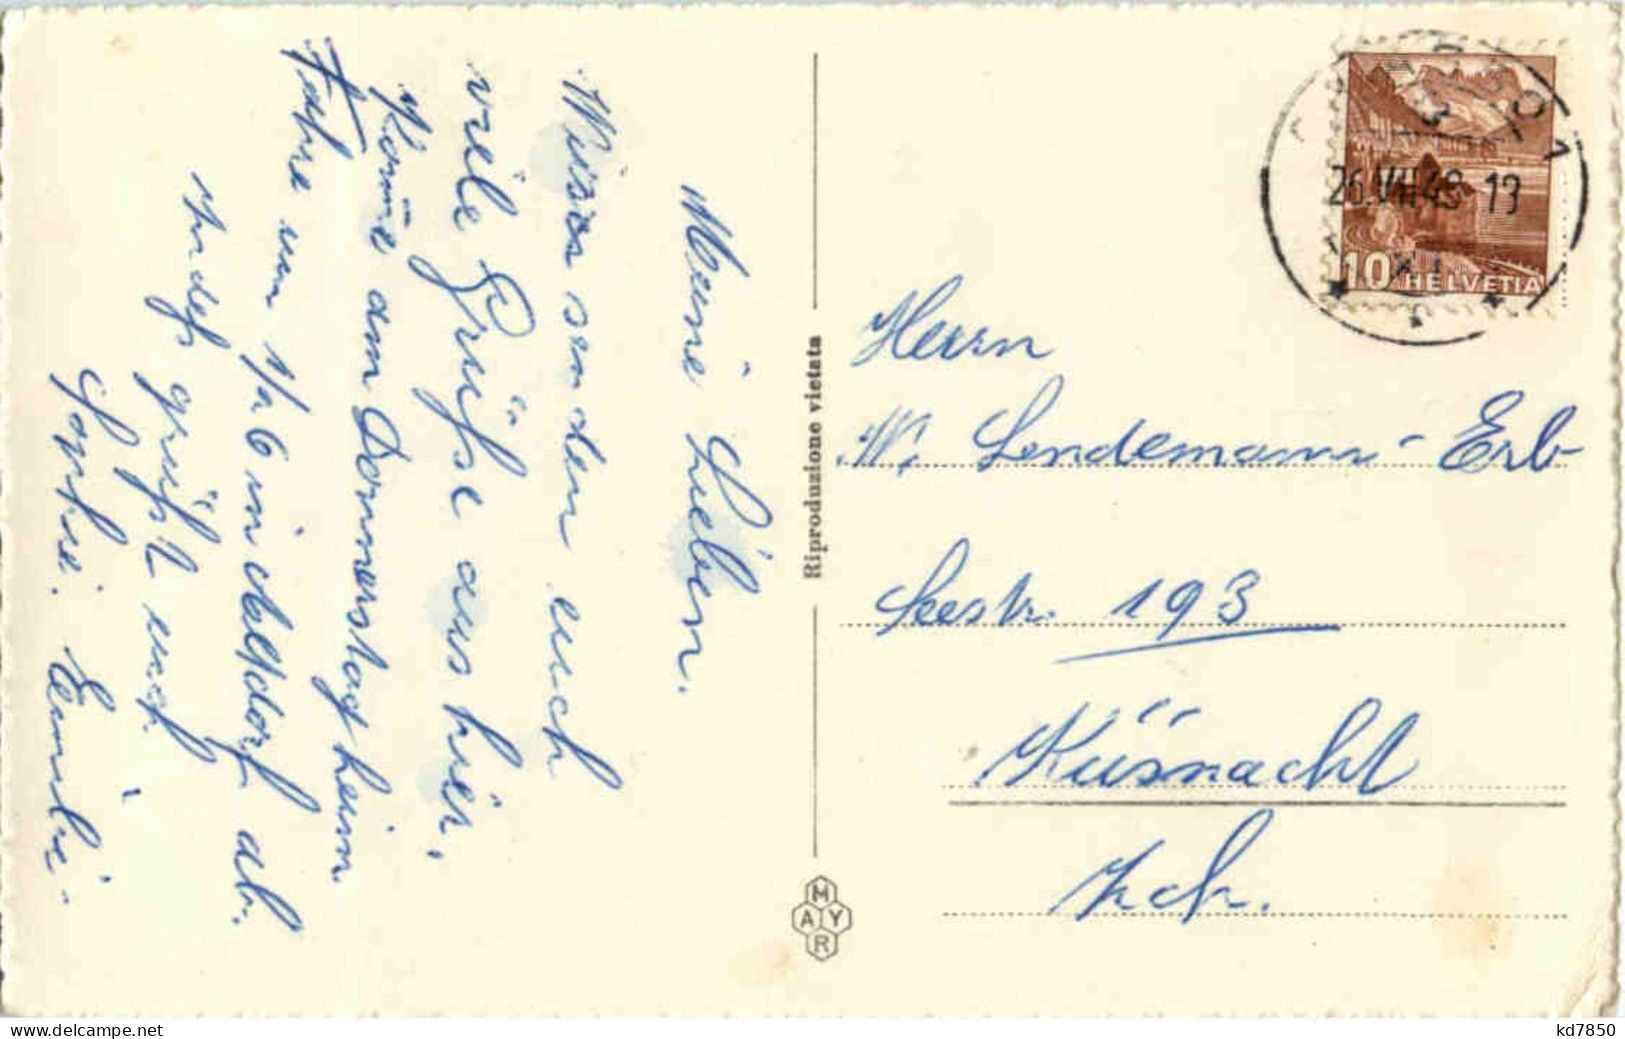 Meine Lieben.
Wir senden euch
viele Grüsse aus hier.
Komme am Donnerstag heim
Fahre um 1/2 6 in Altdorf ab.
Indess grüsst euch
Sophie. Emilie.
Riproduzione vietata
MAYR
26.VII.48-19
10 HELVETIA
Herrn
W. Lendemann-Erb
Seestr. 193
Küsnacht
Zch.
www.delcampe.net
kd7850